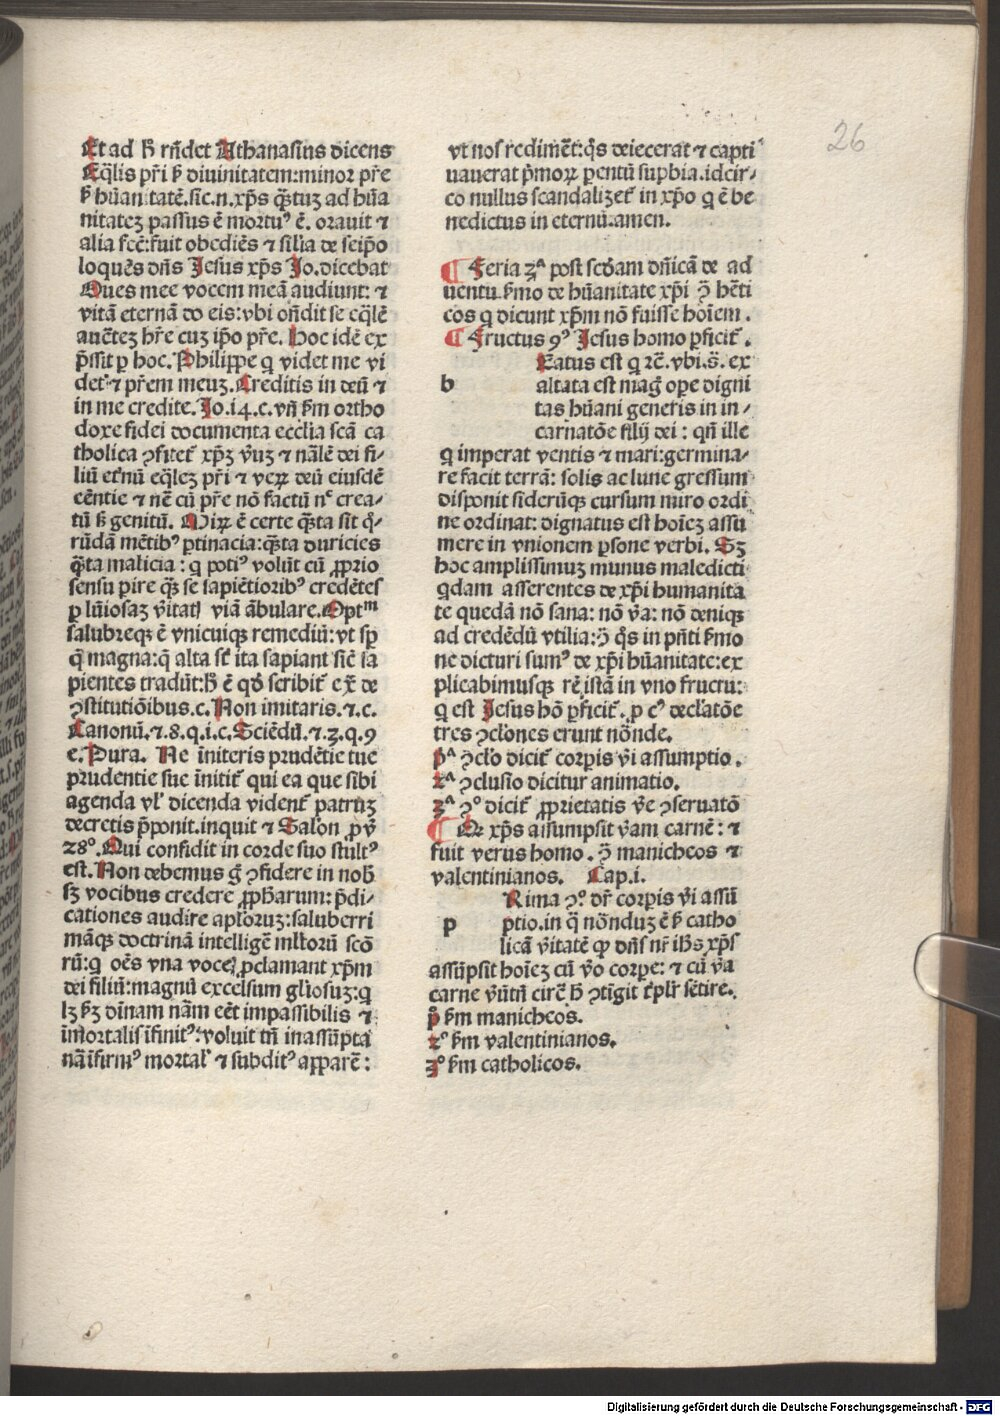 26
Et ad h̄ rn̄det Athanasius dicens
Eq̄lis pr̄i ẜ diuinitatem:minor pr̄e
ẜ hūanitatē.sic.n.xp̄s q̄ꝫtuꝫ ad hūa
nitateꝫ passus ē mortuꝰ ē. orauit ⁊
alia fcē:fuit obediēs ⁊ silia de seip̄o
loquēs dn̄s Jesus xp̄s Jo.dicebat
Oues mee vocem meā audiunt: ⁊
vitā eternā do eis:vbi on̄dit se eq̄lē
auc̄teꝫ hr̄e cuꝫ ip̄o pr̄e. Hoc idē ex
p̄ssit ꝑ hoc. Philippe q videt me vi
det ⁊ pr̄em meuꝫ. Creditis in deū ⁊
in me credite. Jo.14.c.vn̄ ẜm ortho
doxe fidei documenta ecclia scā ca
tholica ꝯfitet᷑ xp̄ꝫ v̄uꝫ ⁊ nālē dei fi-
liū et̄nū eq̄leꝫ pr̄i ⁊ veꝝ deū eiusdē
eēntie ⁊ nē cū pr̄e nō factū nc̄ crea-
tū ẜ genitū. Miꝝ ē certe q̄ꝫta sit q̄-
rūdā mētibꝰ ꝑtinacia:q̄ꝫta duricies
q̄ꝫta malicia : q potiꝰ volūt cū ꝓprio
sensu ꝑire q̄ꝫ se sapiētioribꝰ credētes
ꝑ lūiosaꝫ v̄itatꝭ viā ābulare. Optᵐ
salubreqꝫ ē vnicuiqꝫ remediū: vt sꝑ
q̄ magna:q̄ alta st̄ ita sapiant sic̄ sa
pientes tradūt:h̄ ē qd̄ scribit᷑ ex̄ de
ꝯstitutiōibus.c. Non imitaris.⁊.c.
Canonū.⁊.8.q.i.c.Sciēdū.⁊.3.q.9
c. Pura. Ne īniteris prudētie tue
prudentie sue īnitit᷑ qui ea que sibi
agenda vl̓ dicenda vident᷑ patruꝫ
decretis p̄ponit.inquit ⁊ Salōn ꝓv̄
28°. Qui confidit in corde suo stultꝰ
est. Non debemus g̊ ꝯfidere in nob̄
sꝫ vocibus credere ꝓph̄arum: p̄di-
cationes audire apl̓oruꝫ:saluberri
māqꝫ doctrinā intelligē ml̓torū scō
rū:q oēs vna voce ꝓclamant xp̄m
dei filiū:magnū excelsum gl̓iosuꝫ:q
lꝫ ẜꝫ dīnam nām eēt impassibilis ⁊
īmortalis īfinitꝰ:voluit tn̄ inassūpta
nā īfirmꝰ mortal̓ ⁊ subditꝰ apparē :
vt nos redimēt:q̄s deiecerat ⁊ capti
vauerat p̄moꝝ ꝑentū suꝑbia.idcir-
co nullus scandalizet᷑ in xp̄o q ē be
nedictus in eternū.amen.
¶ Feria 3ᵃ post scd̄am dn̄icā de ad
uentu.ẜmo de hūanitate xp̄i ꝯ̄ hēti
cos q dicunt xp̄m nō fuisse hoīem .
¶ Fructus 9ꝰ Jesus homo ꝑficit᷑ .
b
Eatus est q rc̄. vbi.s̄. ex
altata est mag̊ oꝑe digni
tas hūani generis in in-
carnatōe filij dei : qn̄ ille
q imperat ventis ⁊ mari:germina-
re facit terrā: solis ac lune gressum
disponit siderūqꝫ cursum miro ordi
ne ordinat: dignatus est hoīeꝫ assu
mere in vnionem ꝑsone verbi. Sꝫ
hoc amplissimuꝫ munus maledicti
qdam asserentes de xp̄i humanita
te quedā nō sana: nō v̄a: nō deniqꝫ
ad credēdū vtilia:ꝯ̄ q̄s in pn̄ti ẜmo
ne dicturi sumꝰ de xp̄i hūanitate:ex
plicabimusqꝫ rē istā in vno fructu:
q est Jesus hō ꝑficit᷑.ꝓ cꝰ decl̓atōe
tres ꝯcl̓ones erunt nōnde.
pᵃ ꝯcl̓o dicit᷑ corꝑis v̄i assumptio .
2ᵃ ꝯclusio dicitur animatio.
3ᵃ ꝯ° dicit᷑ ꝓprietatis v̄e ꝯseruatō
¶ Qꝛ xp̄s assumpsit v̄am carnē: ⁊
fuit verus homo . ꝯ̄ manicheos ⁊
valentinianos. Cap.i.
p
Rima ꝯ° dr̄ corꝑis v̄i assū
ptio.in q̄ nōnduꝫ ē ẜ catho
licā v̄itatē ꝙ dn̄s nr̄ ih̄s xp̄s
assūpsit hoīeꝫ cū v̄o corꝑe: ⁊ cū v̄a
carne v̄ūtn̄ circ̄ h̄ ꝯtīgit t̓pl̓r sētire.
p° ẜm manicheos.
2° ẜm valentinianos.
3° ẜm catholicos.
Digitalisierung gefördert durch die Deutsche Forschungsgemeinschaft - DFG